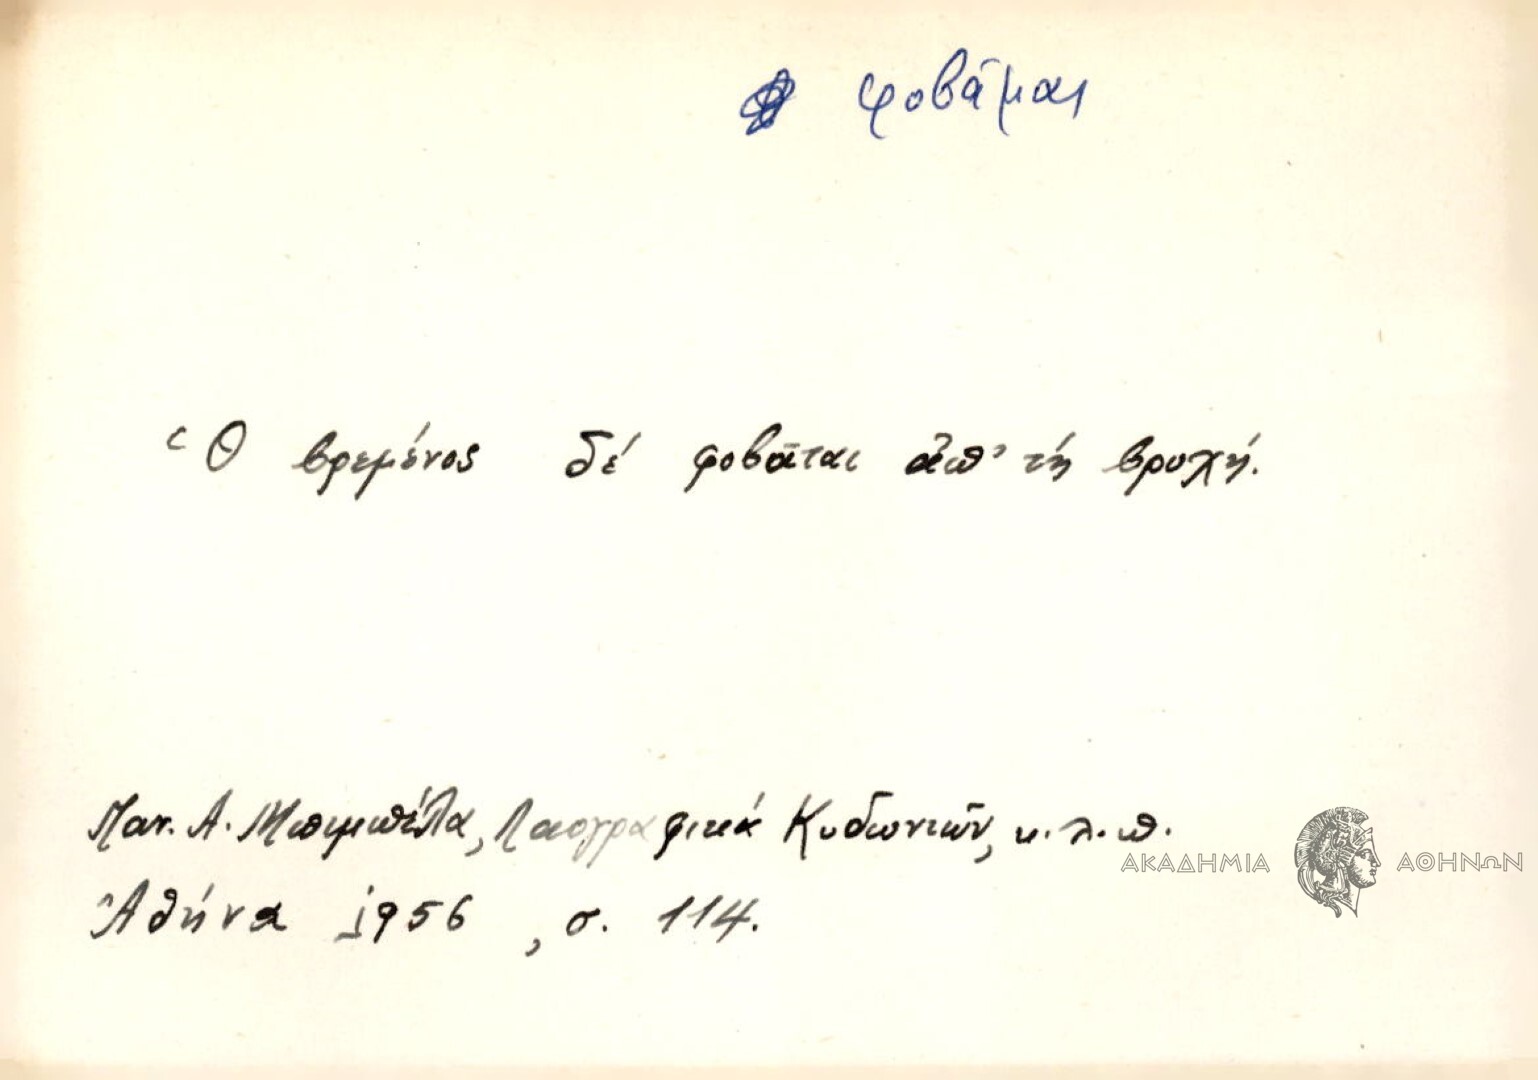 φοβᾶμαι
Ὁ βρεμένος δέ φοβᾶται ἀπ' τή βρυχή.
Παν. Α. Μπιμπέλα, Λαογραφικά Κυδωνιῶν, κ.λ.π.
Ἀθήνα 1956, σ. 114.
ΑΚΑΔΗΜΙΑ ΑΘΗΝΩΝ